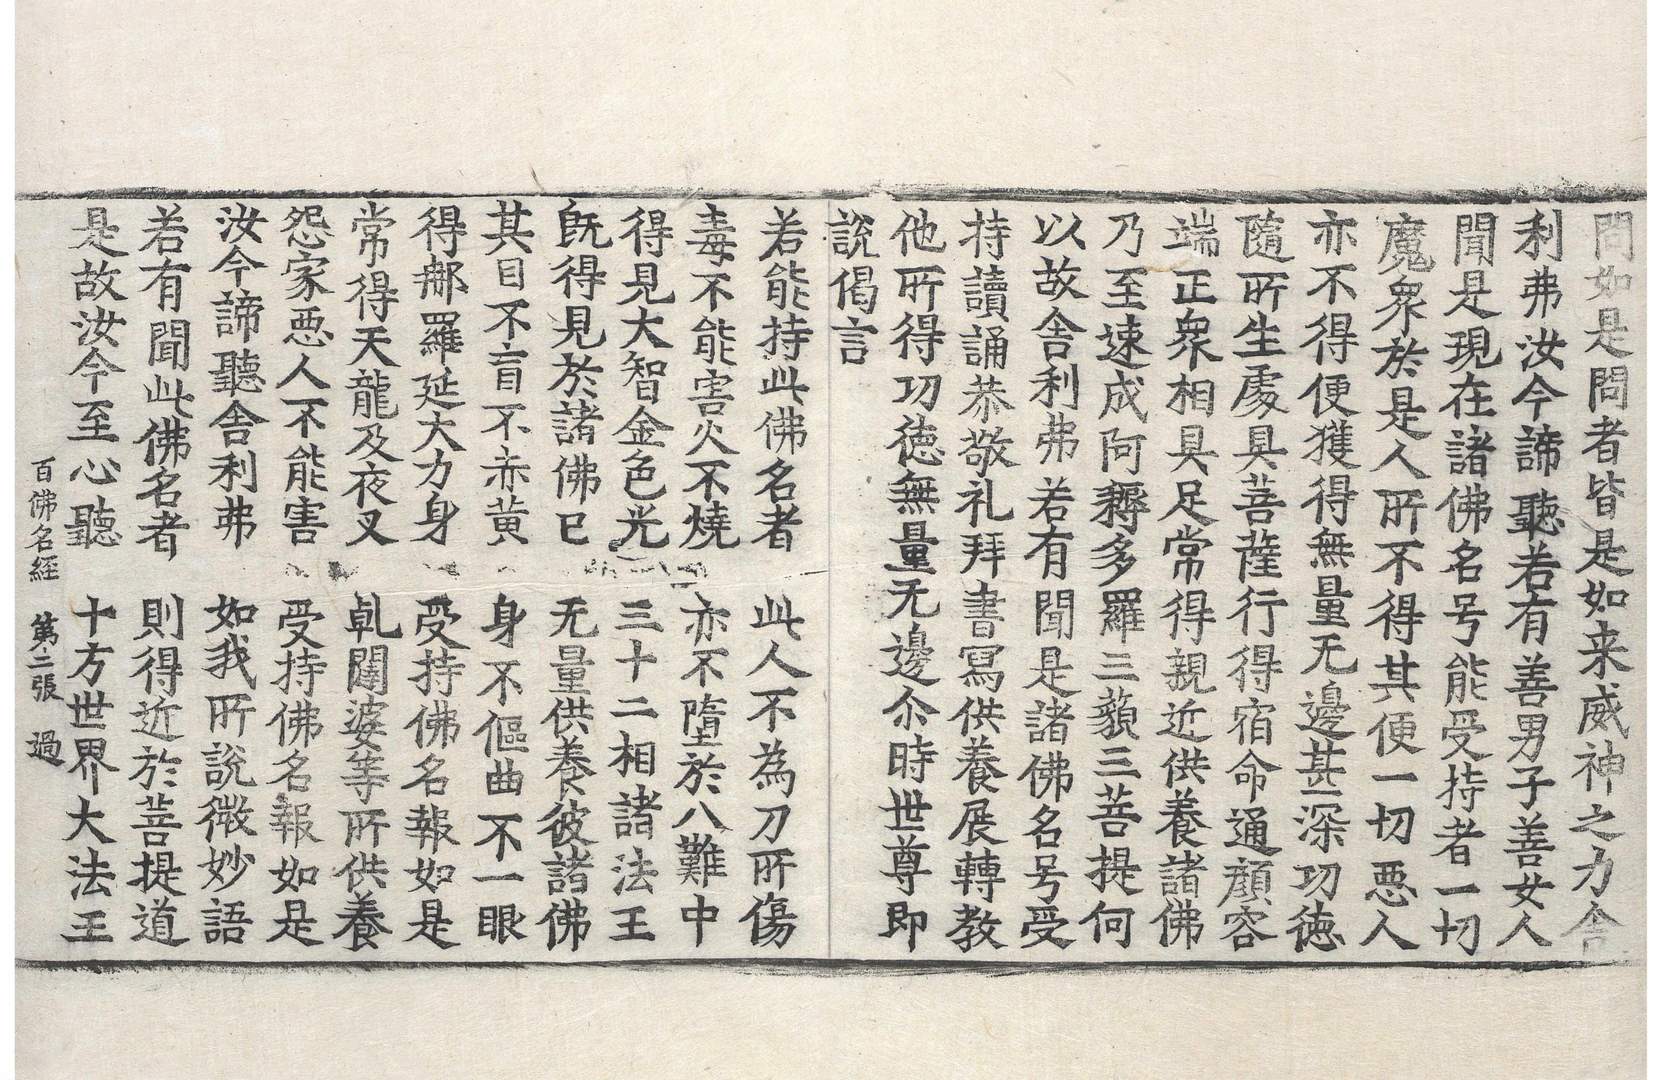 問如是問者皆是如来威神之力舎
利弗汝今諦聽若有善男子善女人
聞是現在諸佛名号能受持者一切
魔衆於是人所不得其便一切惡人
亦不得便獲得無量无邊甚深功徳
隨所生處具菩薩行得宿命通顔容
端正衆相具足常得親近供養諸佛
乃至速成阿耨多羅三藐三菩提何
以故舎利弗若有聞是諸佛名号受
持讀誦恭敬礼拜書寫供養展轉教
他所得功徳無量无邊尒時世尊即
說偈言
若能持此佛名者 此人不為刀所傷
毒不能害火不燒 亦不墮於八難中
得見大智金色光 三十二相諸法王
旣得見於諸佛已 无量供養彼諸佛
其目不盲不赤黄 身不傴曲不一眼
得郍羅延大力身 受持佛名報如是
常得天龍及夜叉 乹闥婆等所供養
怨家惡人不能害 受持佛名報如是
汝今諦聽舎利弗 如我所說微妙語
若有聞此佛名者 則得近於菩提道
是故汝今至心聽 十方世界大法王
百佛名経 第二張 過